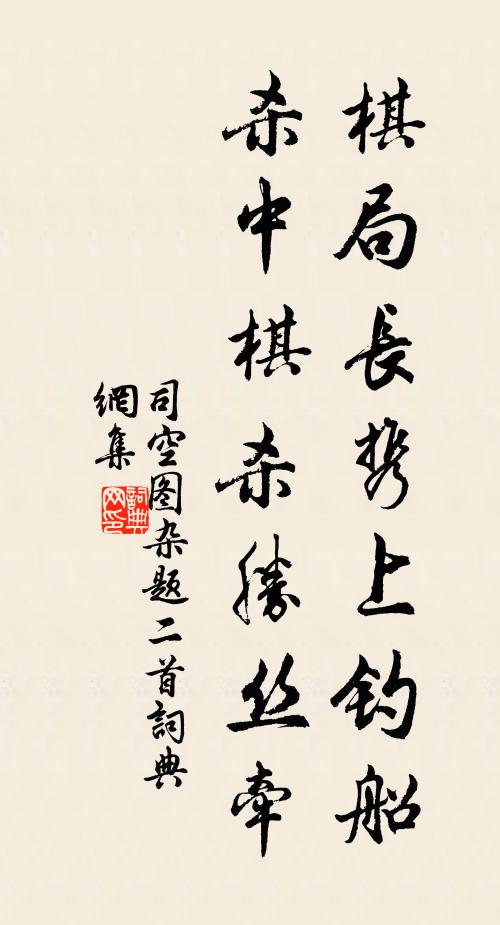 棋局長携上钓船
杀中棋杀勝丝牵
司空图杂题二首詞典
網集
詞典
网印